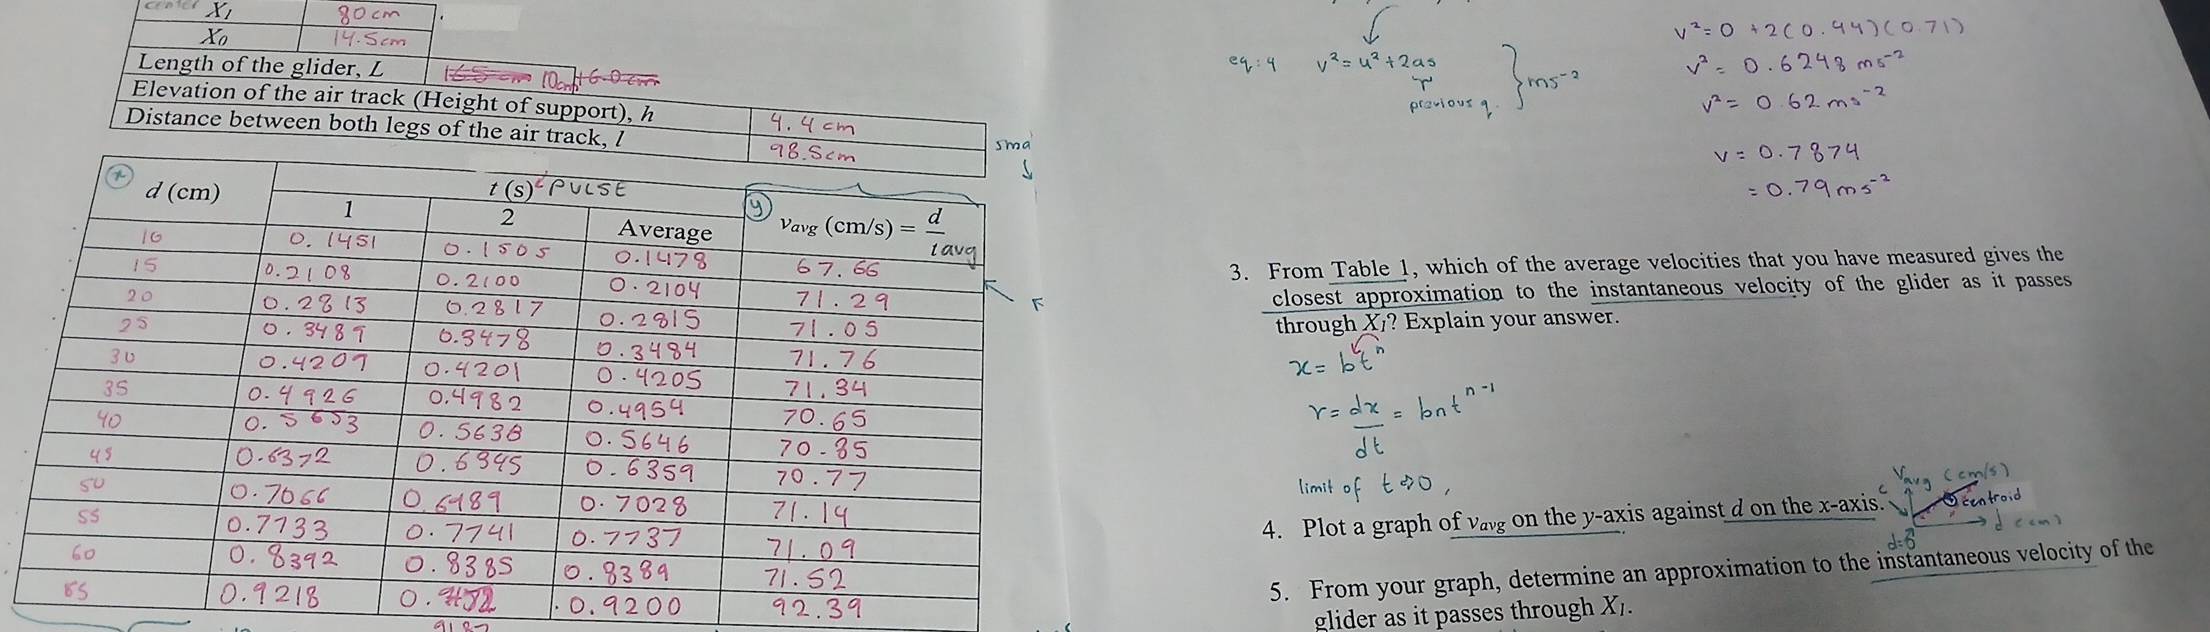 center X1 80cm
X0 14.5cm
Length of the glider, L 10cm
Elevation of the air track (Height of support), h 4.4 cm
Distance between both legs of the air track, l 98.5cm
x d (cm) t (s) PULSE y vavg (cm/s) = d / tavg
1 2 Average
10 0.1451 0.1505 0.1478 67.66
15 0.2108 0.2100 0.2104 71.29
20 0.2813 0.2817 0.2815 71.05
25 0.3489 0.3478 0.3484 71.76
30 0.4209 0.4201 0.4205 71.34
35 0.4926 0.4982 0.4954 70.65
40 0.5653 0.5638 0.5646 70.85
45 0.6372 0.6345 0.6359 70.77
50 0.7066 0.6989 0.7028 71.14
55 0.7733 0.7741 0.7737 71.09
60 0.8392 0.8385 0.8389 71.52
85 0.9218 0.9182 0.9200 92.39
sma
eq:4 v²=u²+2as } ms⁻²
previous q.
v²=0 + 2(0.44)(0.71)
v² = 0.6248 ms⁻²
v² = 0.62 ms⁻²
v = 0.7874
= 0.79ms⁻²
3. From Table 1, which of the average velocities that you have measured gives the
closest approximation to the instantaneous velocity of the glider as it passes
through X1? Explain your answer.
x = btⁿ
v = dx/dt = bntⁿ⁻¹
limit of t→0,
Vavg (cm/s)
c centroid
d (cm)
4. Plot a graph of vavg on the y-axis against d on the x-axis.
5. From your graph, determine an approximation to the instantaneous velocity of the
glider as it passes through X1.